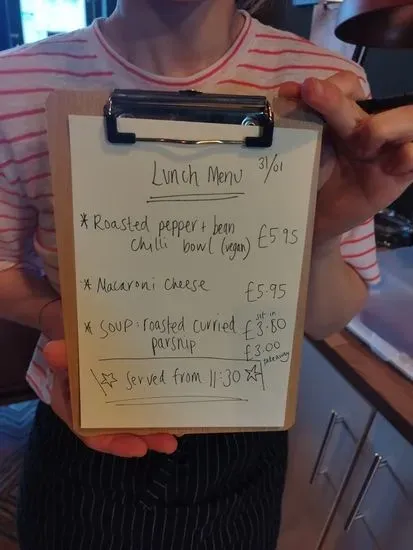 Lunch Menu 31/01
* Roasted pepper + bean £5.95
chilli bowl (vegan)
* Macaroni Cheese £5.95
sit in
* SOUP: roasted curried £3.80
parsnip £3.00
takeaway
☆ Served from 11:30 ☆